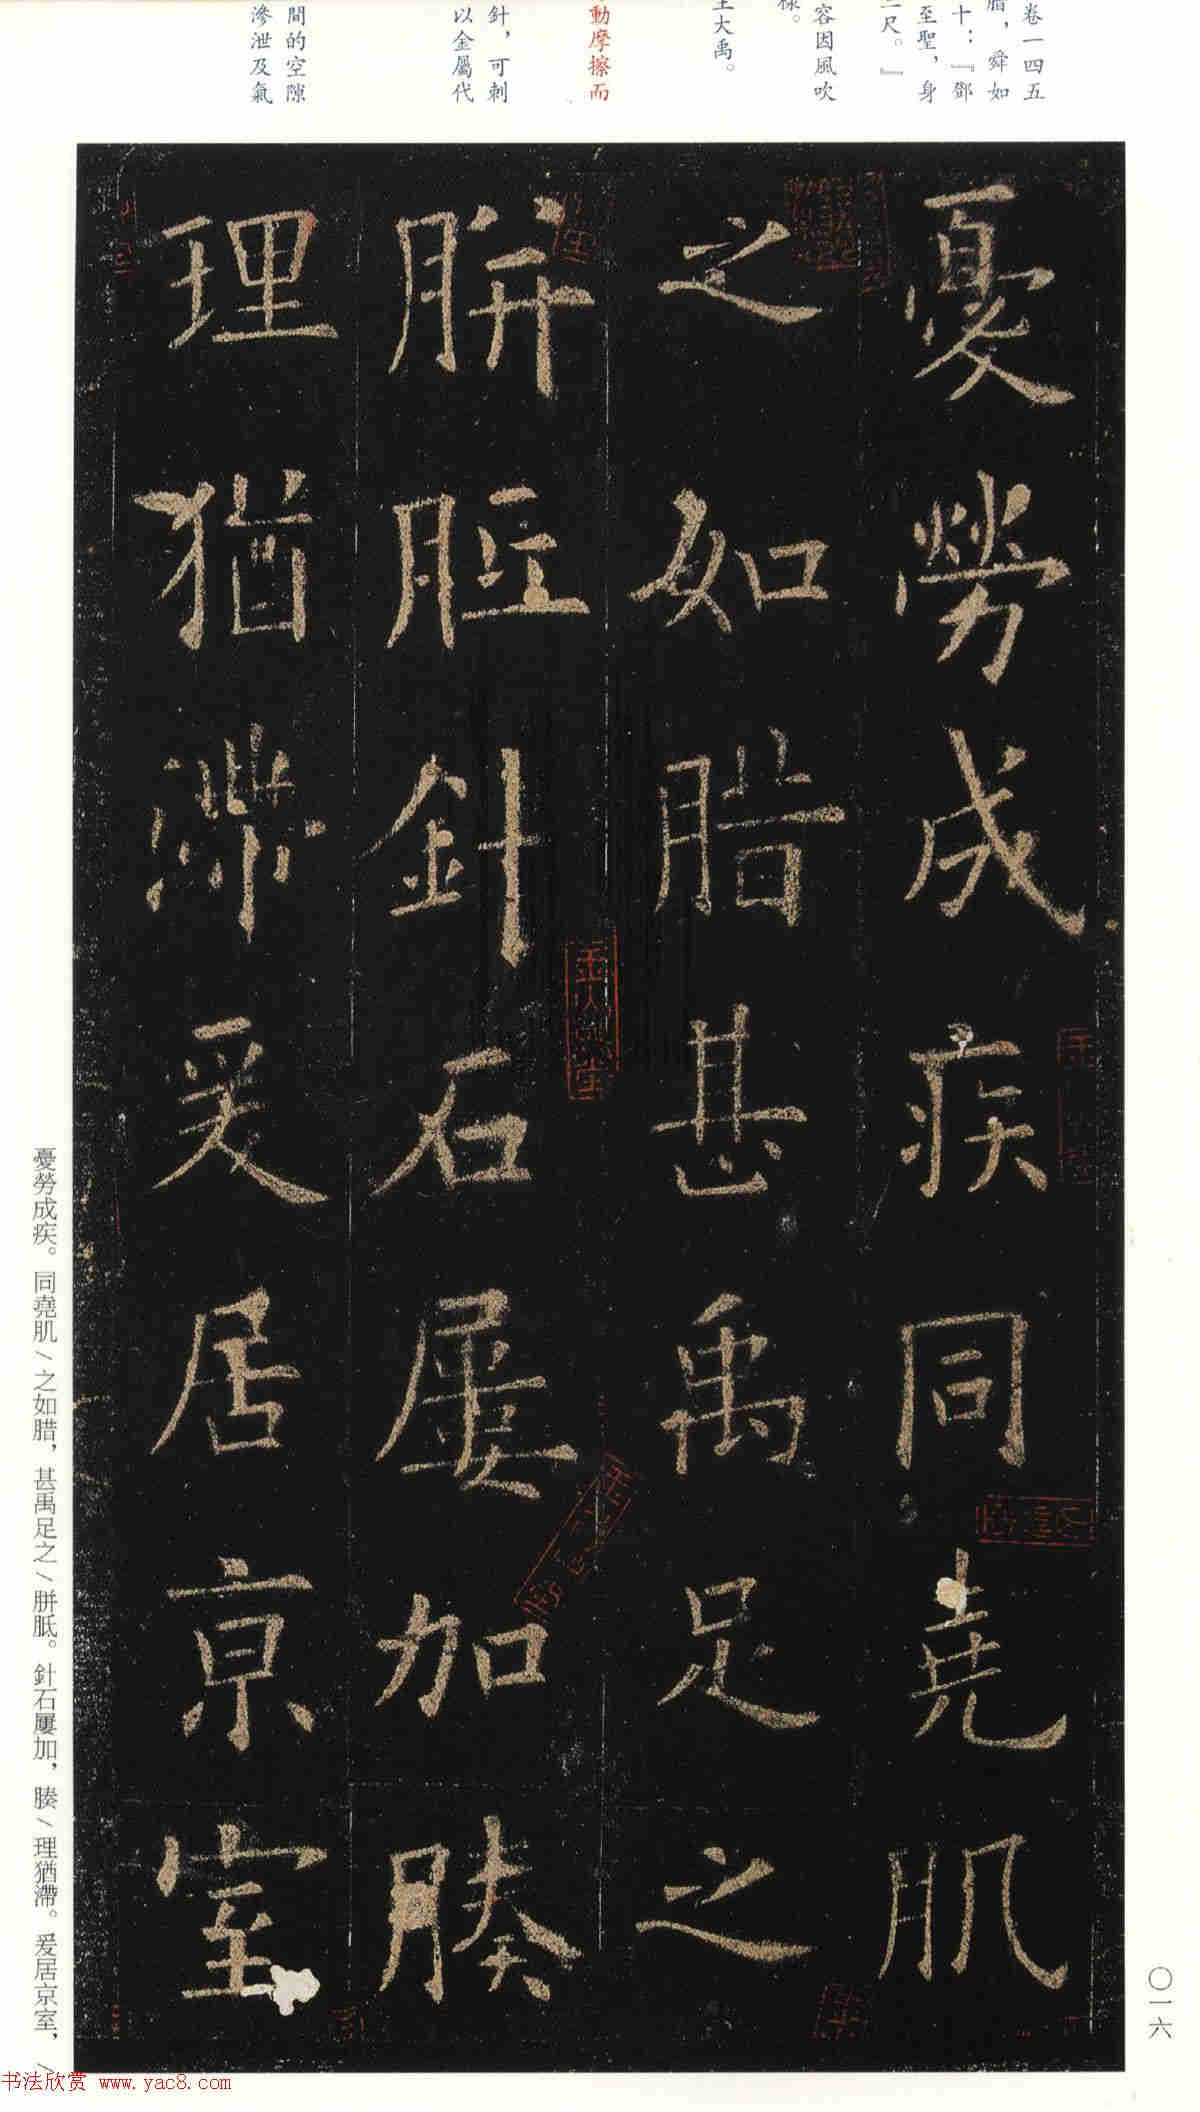 卷一四五
腊，舜如
十：『鄧
至聖，身
二尺。』
容因風吹
樣。
王大禹。
動摩擦而
針，可刺
以金屬代
間的空隙
滲泄及氣
憂勞成疾同堯肌
之如腊甚禹足之
胼胝針石屢加腠
理猶滯爰居京室
憂勞成疾。同堯肌/之如腊，甚禹足之/胼胝。針石屢加，腠/理猶滯。爰居京室，/
〇一六
书法欣赏 www.yac8.com